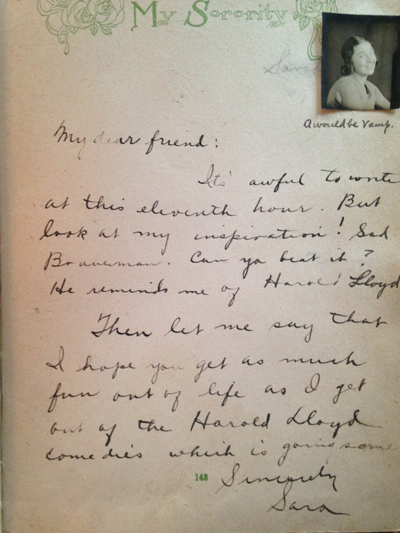 My Sorority
Sara
A would be Vamp.
My dear friend:
Its' awful to write
at this eleventh hour. But
look at my inspiration! Sid
Bowerman. Can ya beat it?
He reminds me of Harold Lloyd
Then let me say that
I hope you get as much
fun out of life as I get
out of the Harold Lloyd
comedies which is going some
Sincerely
Sara
148